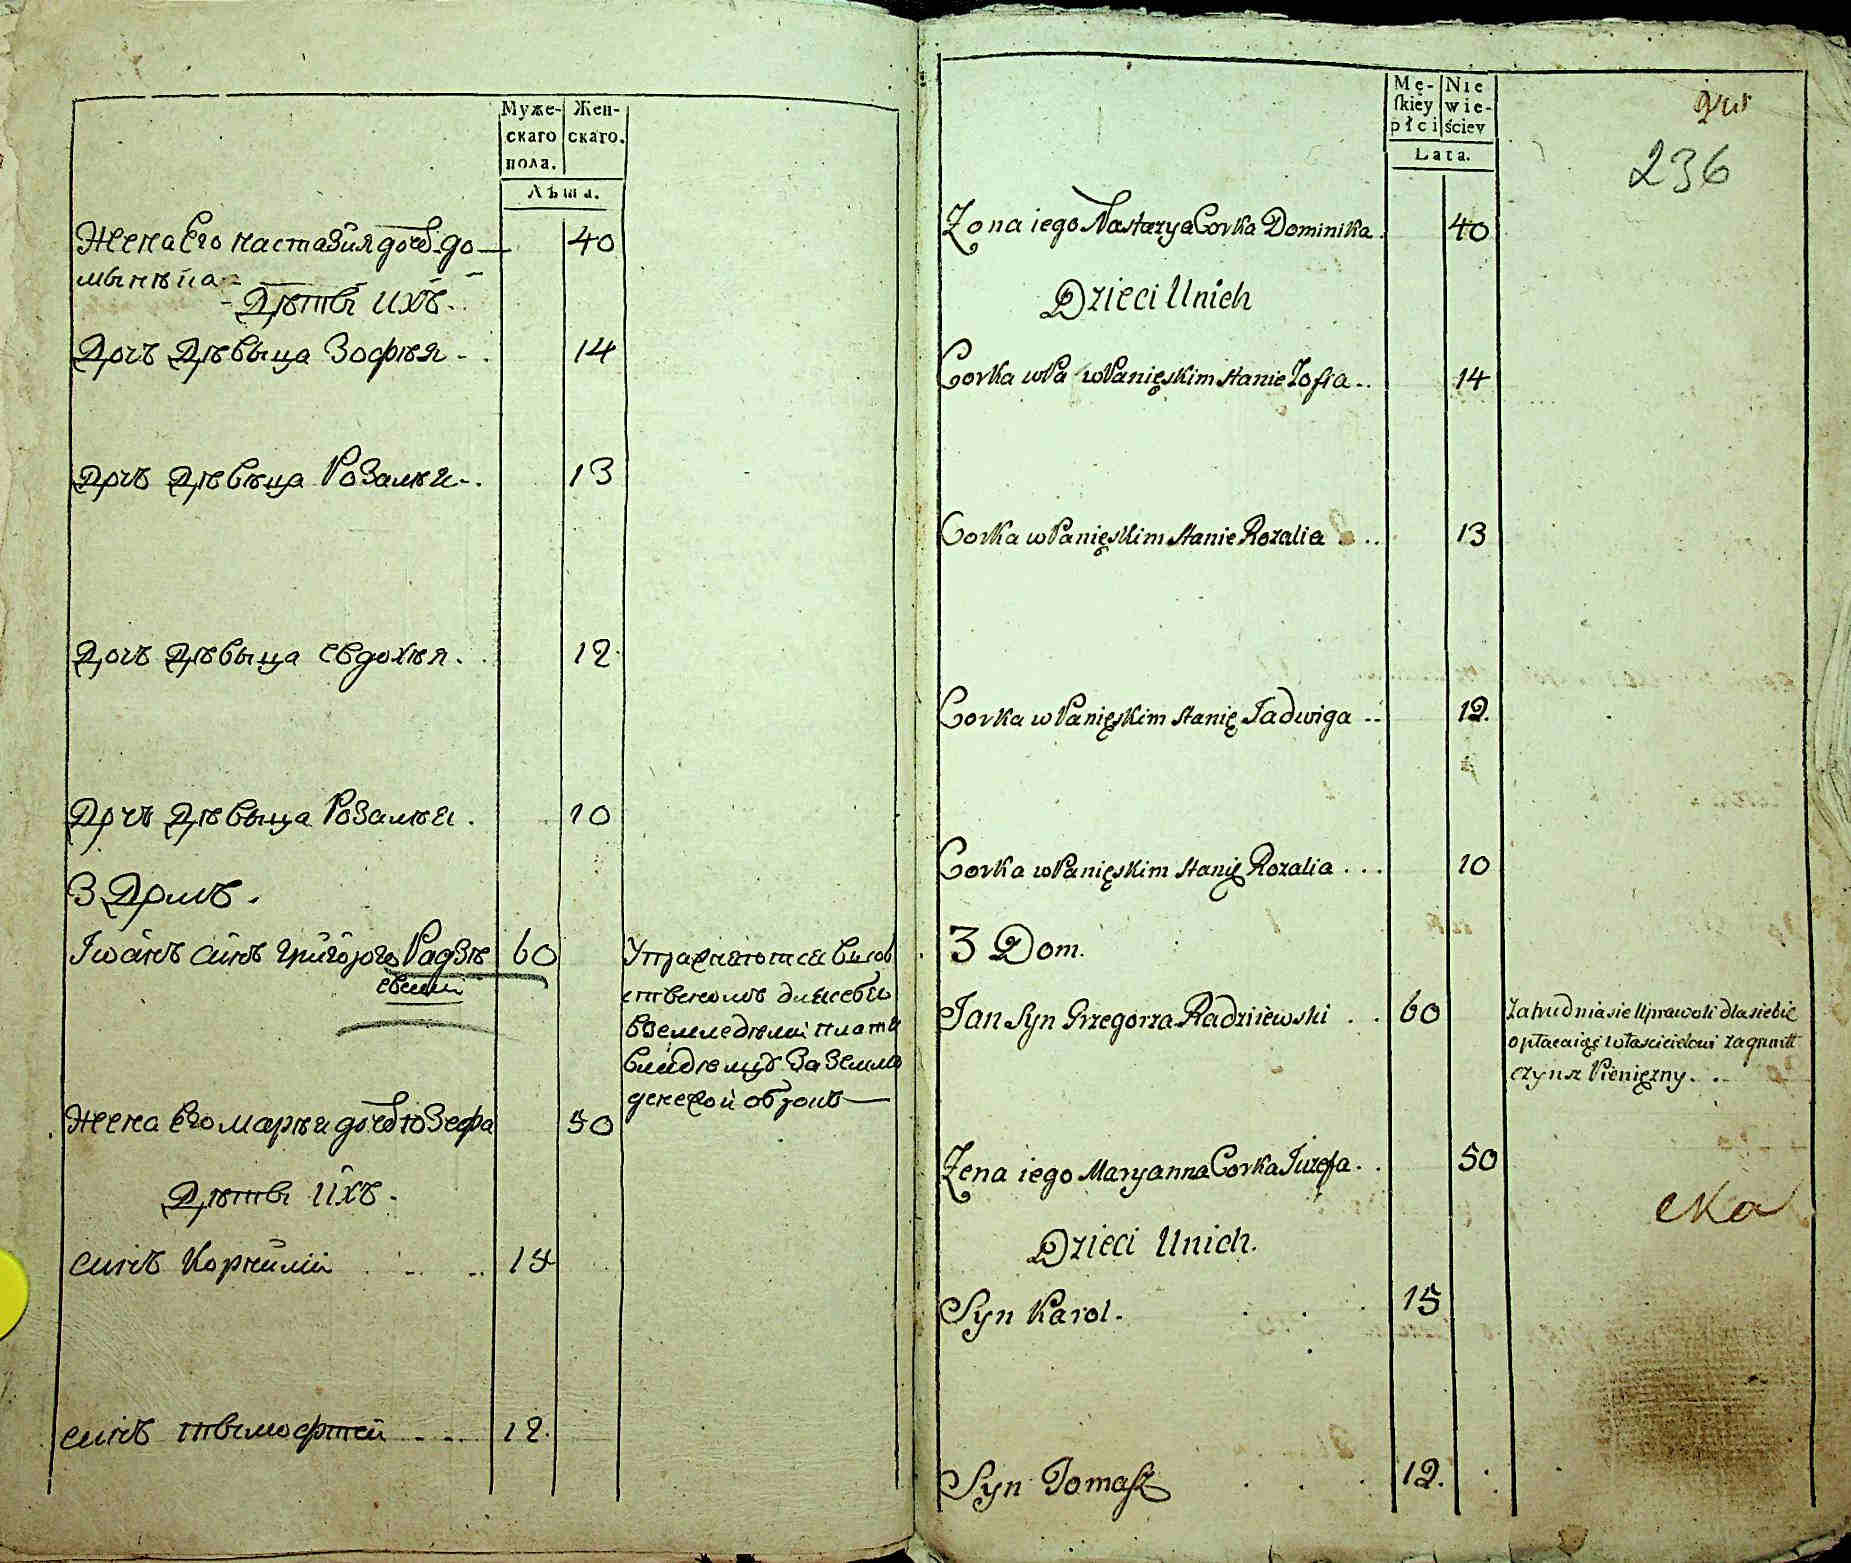 Муже-
скаго
пола.
Жен-
скаго.
Лѣта.
Жена Его настазия дочь до
мынѣка
40
Дѣти ихъ.
Дочъ Дѣвыца Зофѣя
14
Дочъ Дѣвѣца Розалѣя
13
Дочъ Дѣвыца евдохѣя.
12
Дочъ Дѣвыца Розалѣя.
10
3 Домъ.
Іванъ синъ григорого Радзѣ
евски
60
Упражняются
ственомъ для себы
вземледѣлии плати
за землю
денежой оброкъ
Жена Его марѣя дочь юзефа
50
Дѣти ихъ.
синъ Корнилий
15
синъ тымофтей
12.
Mę-
ſkiey
płci
Nie
wie-
ściey
Lata.
236
Zona iego Nastazya Corka Dominika.
40
Dzieci Unich
Corka wPa wPanięskim stanie Zofia..
14
Corka wPanięskim stanie Rozalia
13
Corka wPanięskim stanię Jadwiga
12.
Corka wPanięskim stanię Rozalia...
10
3 Dom.
Jan Syn Grzegorza Radziiewski..
60
Zatrudnia sie Uprawoli dla siebie
opłacaiąc własicielowi zagruntt
czynsz Pienięzny...
Zena iego Maryanna Corka Iuzefa..
50
Dzieci Unich.
Syn Karol.
15
Syn Tomaſz
12.